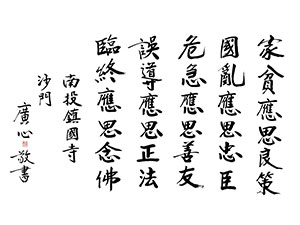 家貧應思良策
國亂應思忠臣
危急應思善友
誤導應思正法
臨終應思念佛
南投鎮國寺
沙門
廣心
敬書